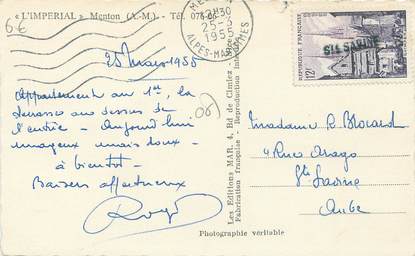 6€
« L'IMPERIAL » Menton (A.-M.) - Tél.
25-3
1955
ALPES-MARITIMES
REPUBLIQUE FRANÇAISE
12F
Ste SAVINE
25 Mars 1955
Appartement au 1er, la
terrasse au dessus de
l'entrée - Aujourd'hui
nuageux mais doux -
à bientôt -
Baisers affectueux
Roger
(06)
Les Editions MAR. 4, Bd de Cimiez
Fabrication française. - Reproduction
Photographie véritable
Madame R. Blocard
4 Rue Arago
Ste Savine
Aube